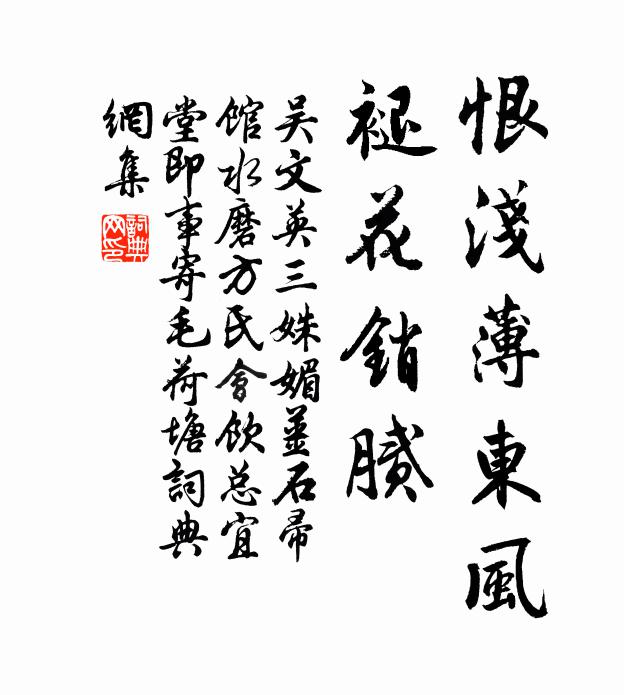 恨淺薄東風
褪花銷膩
吴文英三姝媚薑石帚
馆水磨方氏會饮总宜
堂即事寄毛荷塘詞典
網集
詞典網印